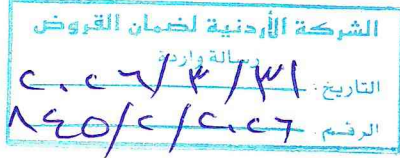 الشركة الأردنية لضمان القروض
رسالة واردة
التاريخ: ٢٠٢٦/٣/٣١
الرقم: ٨٤٥/٢/٢٠٢٦